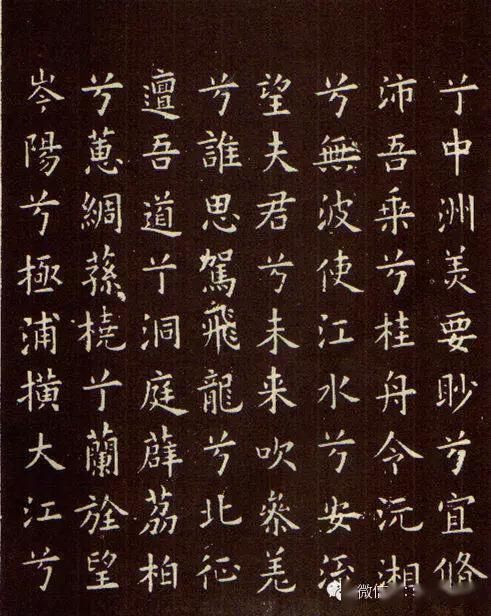 兮中洲美要眇兮宜脩
沛吾乗兮桂舟令沅湘
兮無波使江水兮安流
望夫君兮未来吹參差
兮誰思駕飛龍兮北征
邅吾道兮洞庭薜荔柏
兮蕙綢蓀橈兮蘭旌望
岑陽兮極浦横大江兮
微信